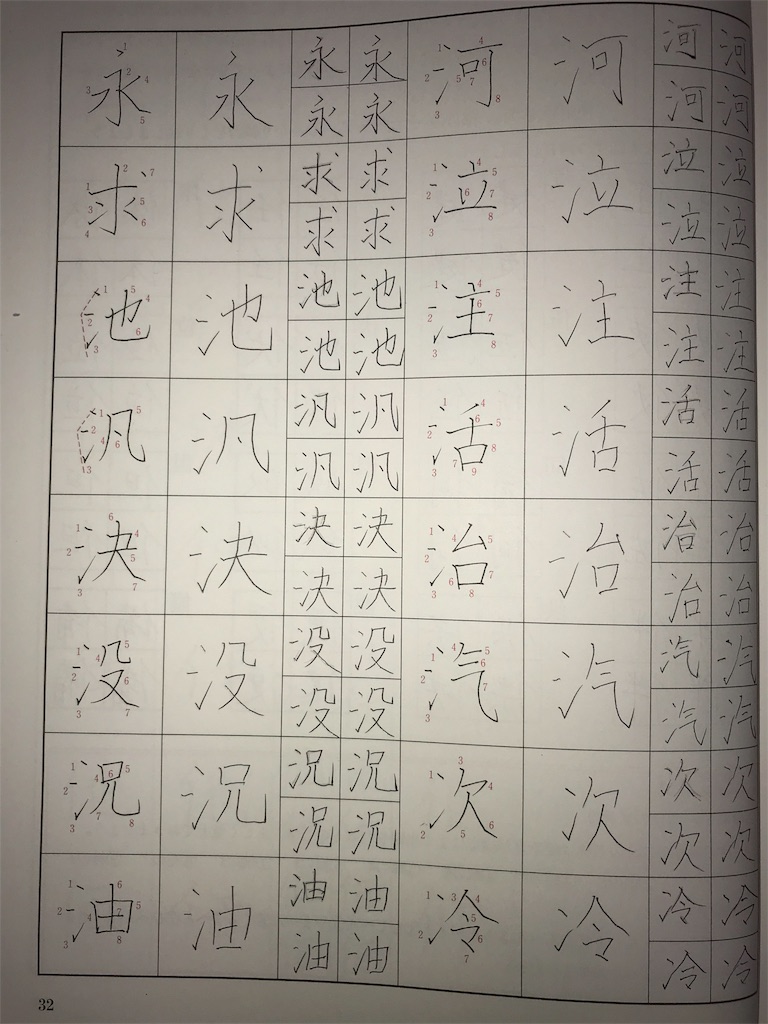 永 永 永 永 河 河 河 河
永 永 河 河
求 求 求 求 泣 泣 泣 泣
求 求 泣 泣
池 池 池 池 注 注 注 注
池 池 注 注
汎 汎 汎 汎 活 活 活 活
汎 汎 活 活
決 決 決 決 治 治 治 治
決 決 治 治
没 没 没 没 汽 汽 汽 汽
没 没 汽 汽
況 況 況 況 次 次 次 次
況 況 次 次
油 油 油 油 冷 冷 冷 冷
油 油 冷 冷
32